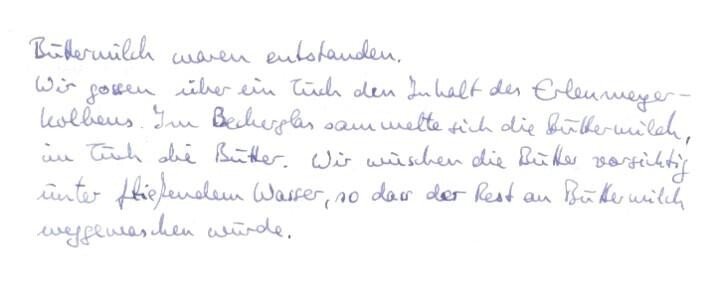 Buttermilch waren entstanden.
Wir gossen über ein Tuch den Inhalt des Erlenmeyer-
kolbens. Im Becherglas sammelte sich die Buttermilch,
im Tuch die Butter. Wir wuschen die Butter vorsichtig
unter fließendem Wasser, so dass der Rest an Buttermilch
weggewaschen wurde.